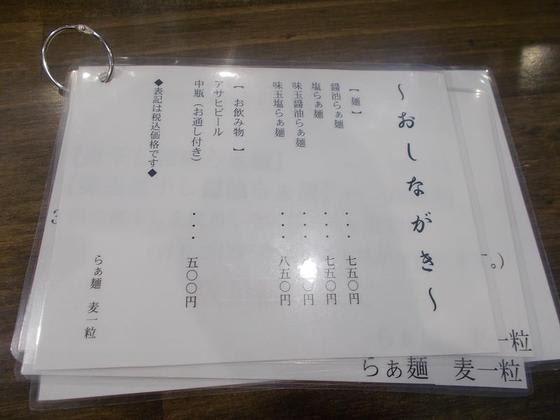 ～おしながき～
【麺】
醤油らぁ麺 ・・・ 七五〇円
塩らぁ麺 ・・・ 七五〇円
味玉醤油らぁ麺 ・・・ 五〇円
味玉塩らぁ麺 ・・・ 八五〇円
【お飲み物】
アサヒビール
中瓶（お通し付き） ・・・ 五〇〇円
◆表記は税込価格です◆
らぁ麺 麦一粒
。）
一粒
らぁ麺 麦一粒